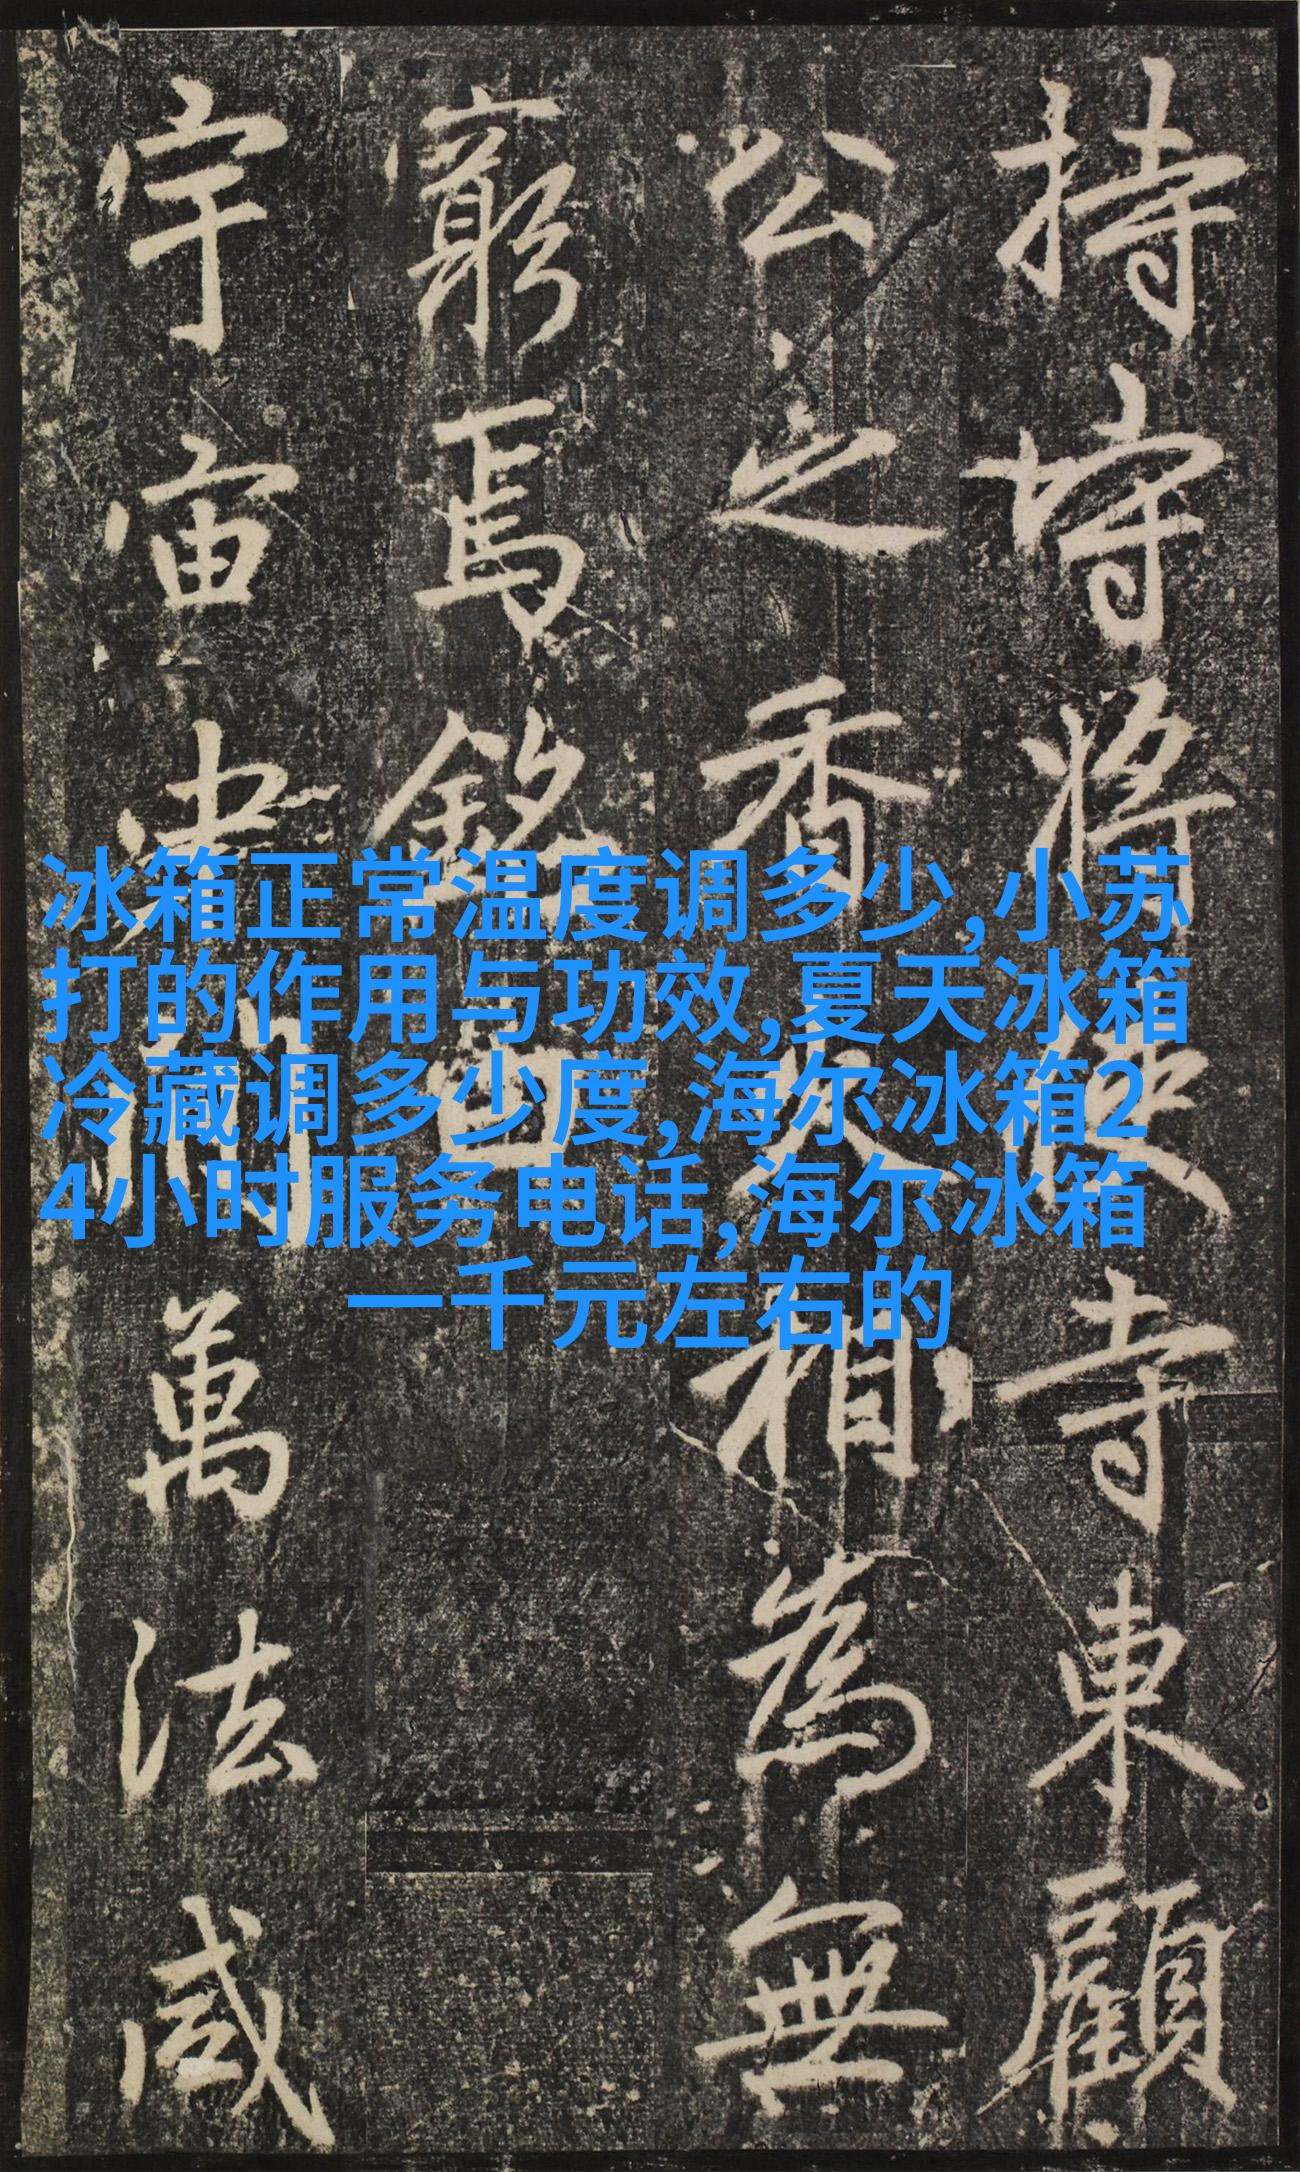 冰箱正常温度调多少,小苏
打的作用与功效,夏天冰箱
冷藏调多少度,海尔冰箱2
4小时服务电话,海尔冰箱
一千元左右的
持將使寺東顧
公之香火相為無
窮焉銘曰
宇宙萬法咸